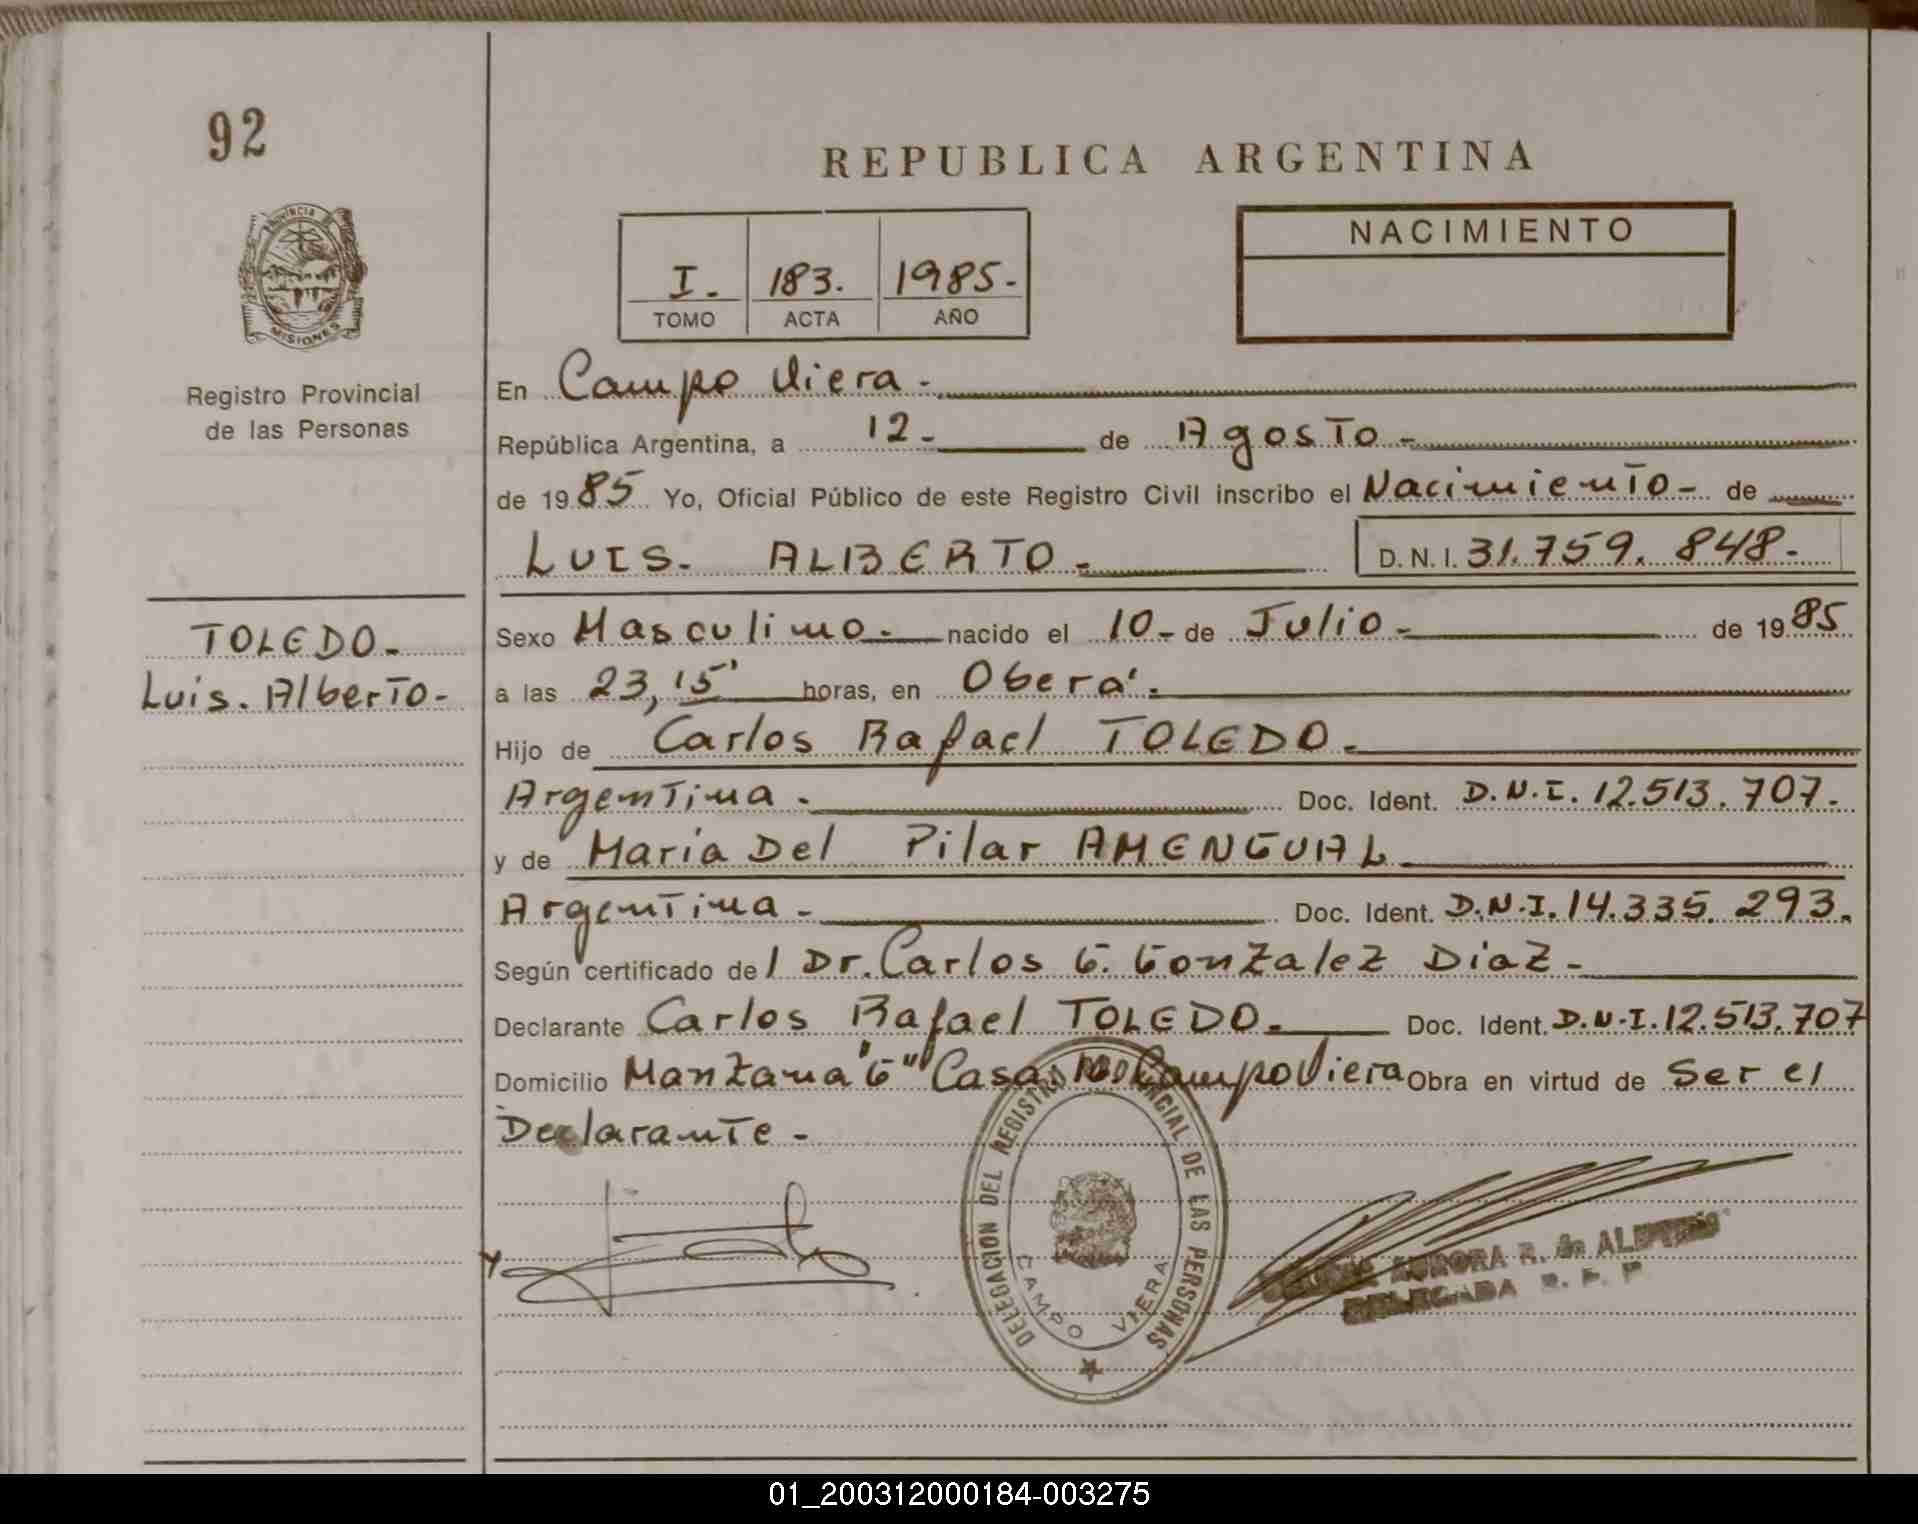 92
REPUBLICA ARGENTINA
PROVINCIA
MISIONES
Registro Provincial
de las Personas
I. 183. 1985.-
TOMO ACTA AÑO
NACIMIENTO
En Campo Viera.-
República Argentina, a 12- de Agosto-
de 1985 Yo, Oficial Público de este Registro Civil inscribo el Nacimiento- de
LUIS. ALBERTO- D. N. I. 31.759.848.-
TOLEDO-
Luis. Alberto-
Sexo Masculino.- nacido el 10- de Julio- de 1985
a las 23,15' horas, en Oberá.-
Hijo de Carlos Rafael TOLEDO.-
Argentina.- Doc. Ident. D.N.I. 12.513.707.-
y de Maria Del Pilar AMENGUAL
Argentina- Doc. Ident. D.N.I. 14.335.293.
Según certificado del Dr. Carlos G. Gonzalez Diaz-
Declarante Carlos Rafael TOLEDO.- Doc. Ident. D.N.I. 12.513.707
Domicilio Manzana "G" Casa Campo Viera Obra en virtud de Ser el
Declarante-
DELEGACION DEL REGISTRO PROVINCIAL DE LAS PERSONAS
CAMPO VIERA
AURORA R. de
DELEGADA R. P. P.
01_200312000184-003275